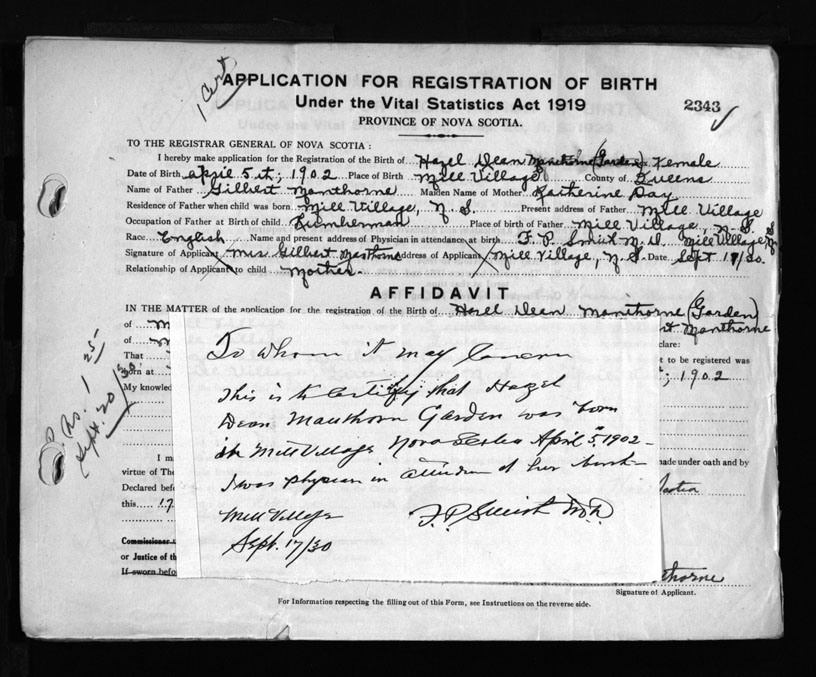 1 Cert
APPLICATION FOR REGISTRATION OF BIRTH
Under the Vital Statistics Act 1919
2343
PROVINCE OF NOVA SCOTIA.
TO THE REGISTRAR GENERAL OF NOVA SCOTIA:
I hereby make application for the Registration of the Birth of Hazel Dean Manthorne (Garden) Sex Female
Date of Birth April 5th, 1902 Place of Birth Mill Village County of Queens
Name of Father Gilbert Manthorne Maiden Name of Mother Katherine Day
Residence of Father when child was born Mill Village, N. S. Present address of Father Mill Village
Occupation of Father at Birth of child Lumberman Place of birth of Father Mill Village, N. S.
Race English Name and present address of Physician in attendance at birth F. P. Smith M. D. Mill Village, N S
Signature of Applicant Mrs Gilbert Manthorne Address of Applicant Mill Village, N. S. Date Sept 17/30.
Relationship of Applicant to child Mother.
AFFIDAVIT
IN THE MATTER of the application for the registration of the Birth of Hazel Dean Manthorne (Garden)
of M
t Manthorne
of
clare:
That
t to be registered was
Born at
, 1902
My knowled
To whom it may Concern
This is to Certify that Hazel
Dean Manthorn Garden was born
in Mill Village Nova Scotia April 5, 1902 -
I was physician in attendance at her birth
Mill Village F. P. Smith M.D.
Sept. 17/30
I ma
made under oath and by
virtue of The
Declared befo
this 17
Commissioner
or Justice of th
If sworn befo
thorne
Signature of Applicant.
For Information respecting the filling out of this Form, see Instructions on the reverse side.
P. No. 1 25
Sept. 20/30